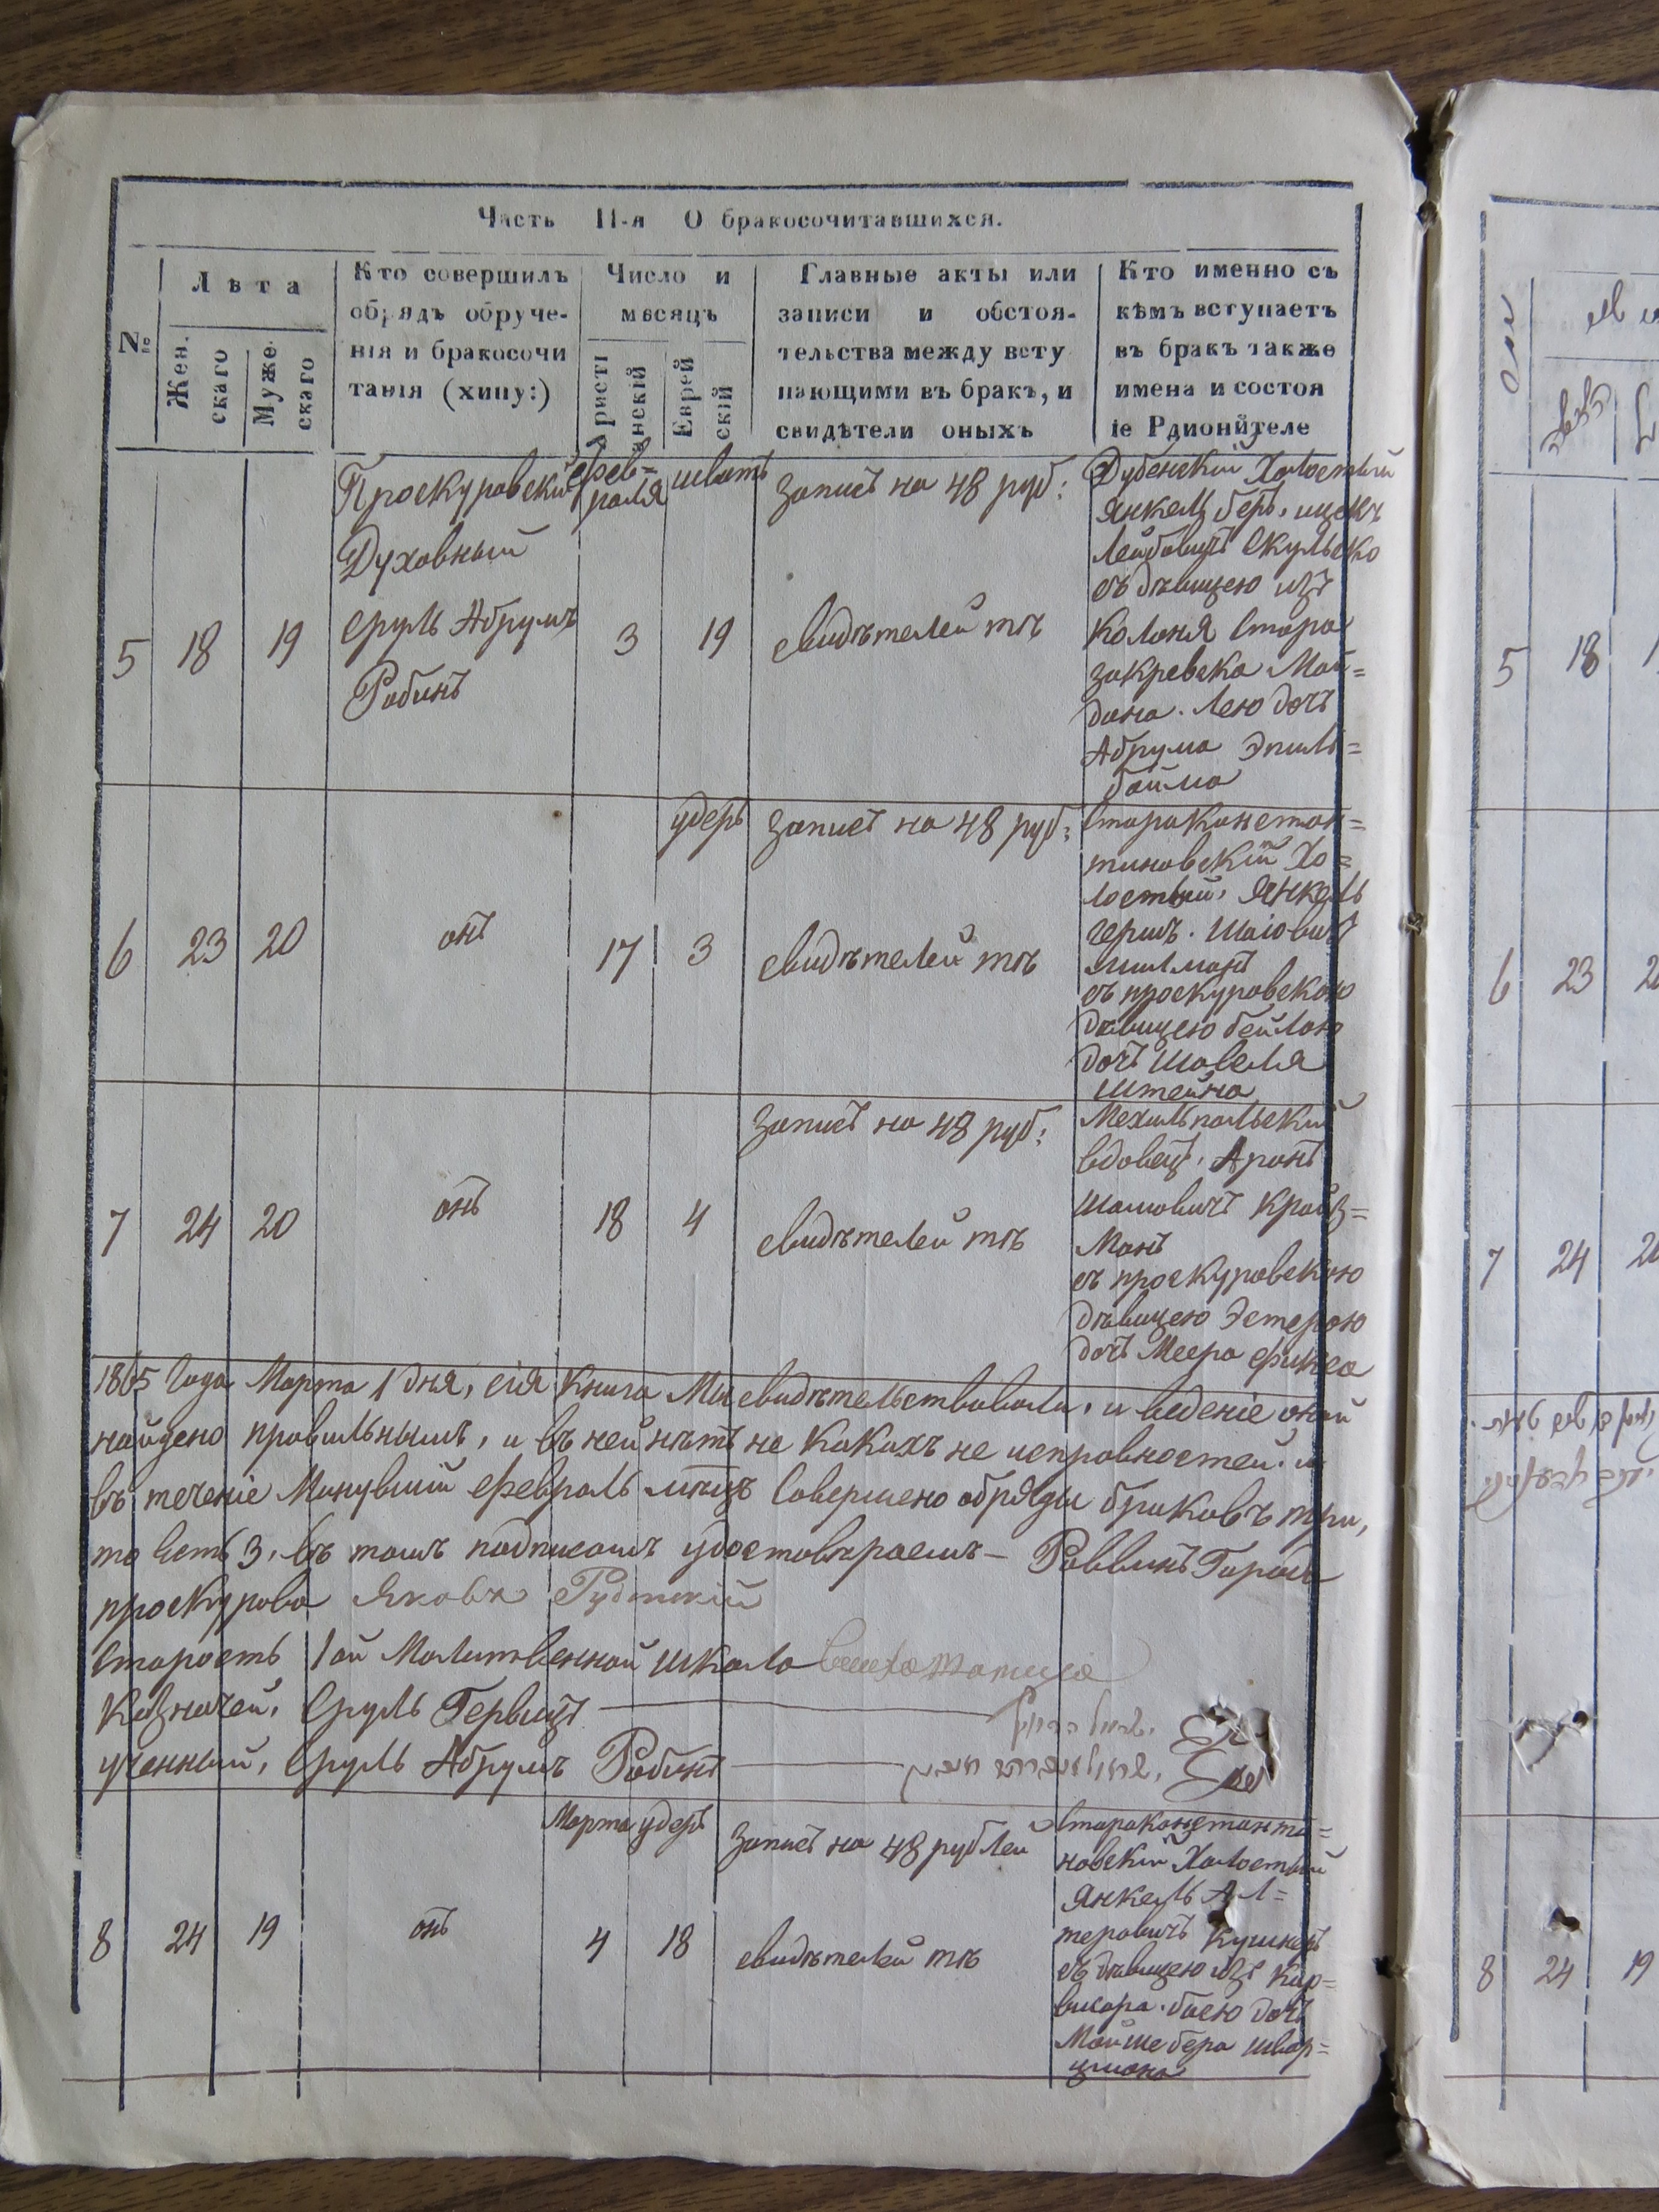 Часть II-я О бракосочитавшихся.
№
Лѣта
Жен.
скаго
Муже
скаго
Кто совершилъ
обрядъ обруче-
нія и бракосочи
танія (хипу:)
Число и
мѣсяцъ
Христі
анскій
Еврей
скій
Главные акты или
записи и обстоя-
тельства между всту
пающими въ бракъ, и
свидѣтели оныхъ
Кто именно съ
кѣмъ вступаетъ
въ бракъ также
имена и состоя
іе Рдионйтеле
5
18
19
Проскуровскій
Духовный
Сруль Абрумъ
Рабинъ
Фев=
раля
3
шватъ
19
Записъ на 48 руб:
свидѣтелей тѣ
Дубенскій Холостый
Янкель беръ, ицекъ
Лейбовичъ Скульско
съ дѣвицею изъ
Колонія Стара
закревска Май=
дана. Лею дочъ
Абрума Эпель=
байма
6
23
20
онъ
17
удеръ
3
Записъ на 48 руб:
свидѣтелей тѣ
Стараконстан=
тиновскій Хо=
лостый, Янкель
гершъ. Шаіовичъ
съ проскуровскою
дѣвицею бейлою
дочъ Шовеля
Штейна
7
24
20
онъ
18
4
Записъ на 48 руб:
свидѣтелей тѣ
Мехильпольскій
вдовецъ, Аронъ
Шамовичъ Крайз=
Манъ
съ проскуровскою
дѣвицею Эстерою
дочъ Меера Финка
1865 Года Марта 1 дня, сія Книга Мы свидѣтельствовали, и веденіе оной
найдено провильнымъ, и въ ней нѣтъ не какихъ не исправностей. и
въ теченіе Минувшій Февраль мѣцъ Совершено обряды браковъ три,
то есть 3, въ томъ подписомъ удостовѣраемъ — Раввинъ Города
проскурова Яковъ
Старость 1ой Молитвенной школа
Казначей, Сруль Гервицъ
ученный, Сруль Абрумъ Рабинъ
8
24
19
онъ
Марта
4
удеръ
18
Записъ на 48 рублей
свидѣтелей тѣ
Стараконстанти=
новскій Холостый
Янкель Ал=
теровичъ Кушнеръ
съ дѣвицею изъ Кир=
басею дочъ
Мойше бера Швар=
цмана
5
18
6
23
7
24
8
24
19